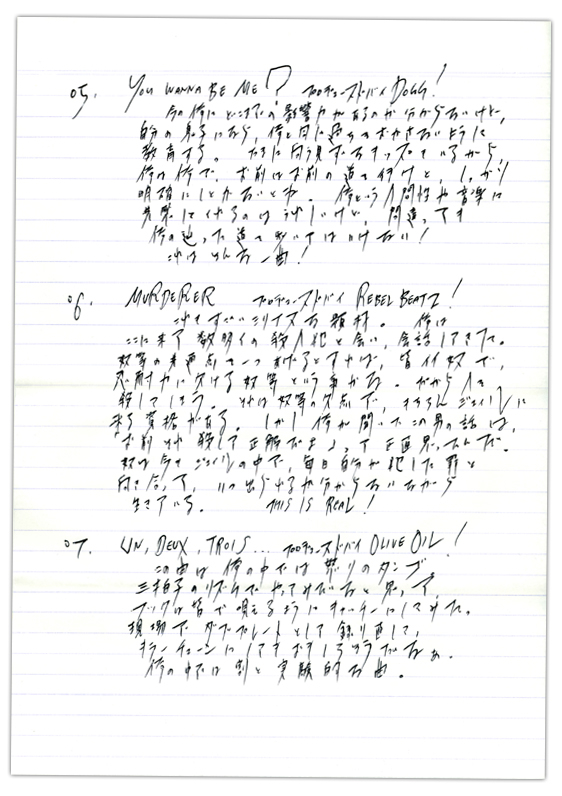 05. YOU WANNA BE ME? プロデューストバイ DOGG!
今の俺にどこまでの影響力があるのか分からないけど、
自分の息子になら、俺と同じ過ちをおかさないように
教育する。
俺は俺で、お前はお前の道を行けと、しっかり
明確にしとかないとな。俺という人間性や音楽に
共感してくれるのはうれしいけど、間違っても
俺の辿った道を歩いてはいけない!
これはそんな一曲!
06. MURDERER プロデューストバイ REBEL BEATZ!
これもすごいシリアスな題材。俺は
ここに来て数明くの殺人犯と会い、会話してきた。
奴等の共通点を一つあげるとすれば、皆イイ奴で、
忍耐力に欠ける奴等という事かな。だから人を
殺してしまう。それは奴等の欠点で、もちろんジェイルに
来る資格がある。しかし俺が聞いたこの男の話は、
「お前それ殺して正解だよ」って正直思ったんだ。
奴は今もジェイルの中で、毎日自分が犯した罪と
向き合って、いつ出られるか分からないながら
生きている。 THIS IS REAL!
07. UN, DEUX, TROIS... プロデューストバイ OLIVE OIL!
この曲は俺の中では怒りのダンプ
三拍子のリズムでやってみたいなと思って、
フックは皆で唄えるようにキャッチーにしてみた。
現場でダブプレートとして録り直して、
キラーチューンにしてもおもしろそうだなぁ。
俺の中では割と実験的な曲。